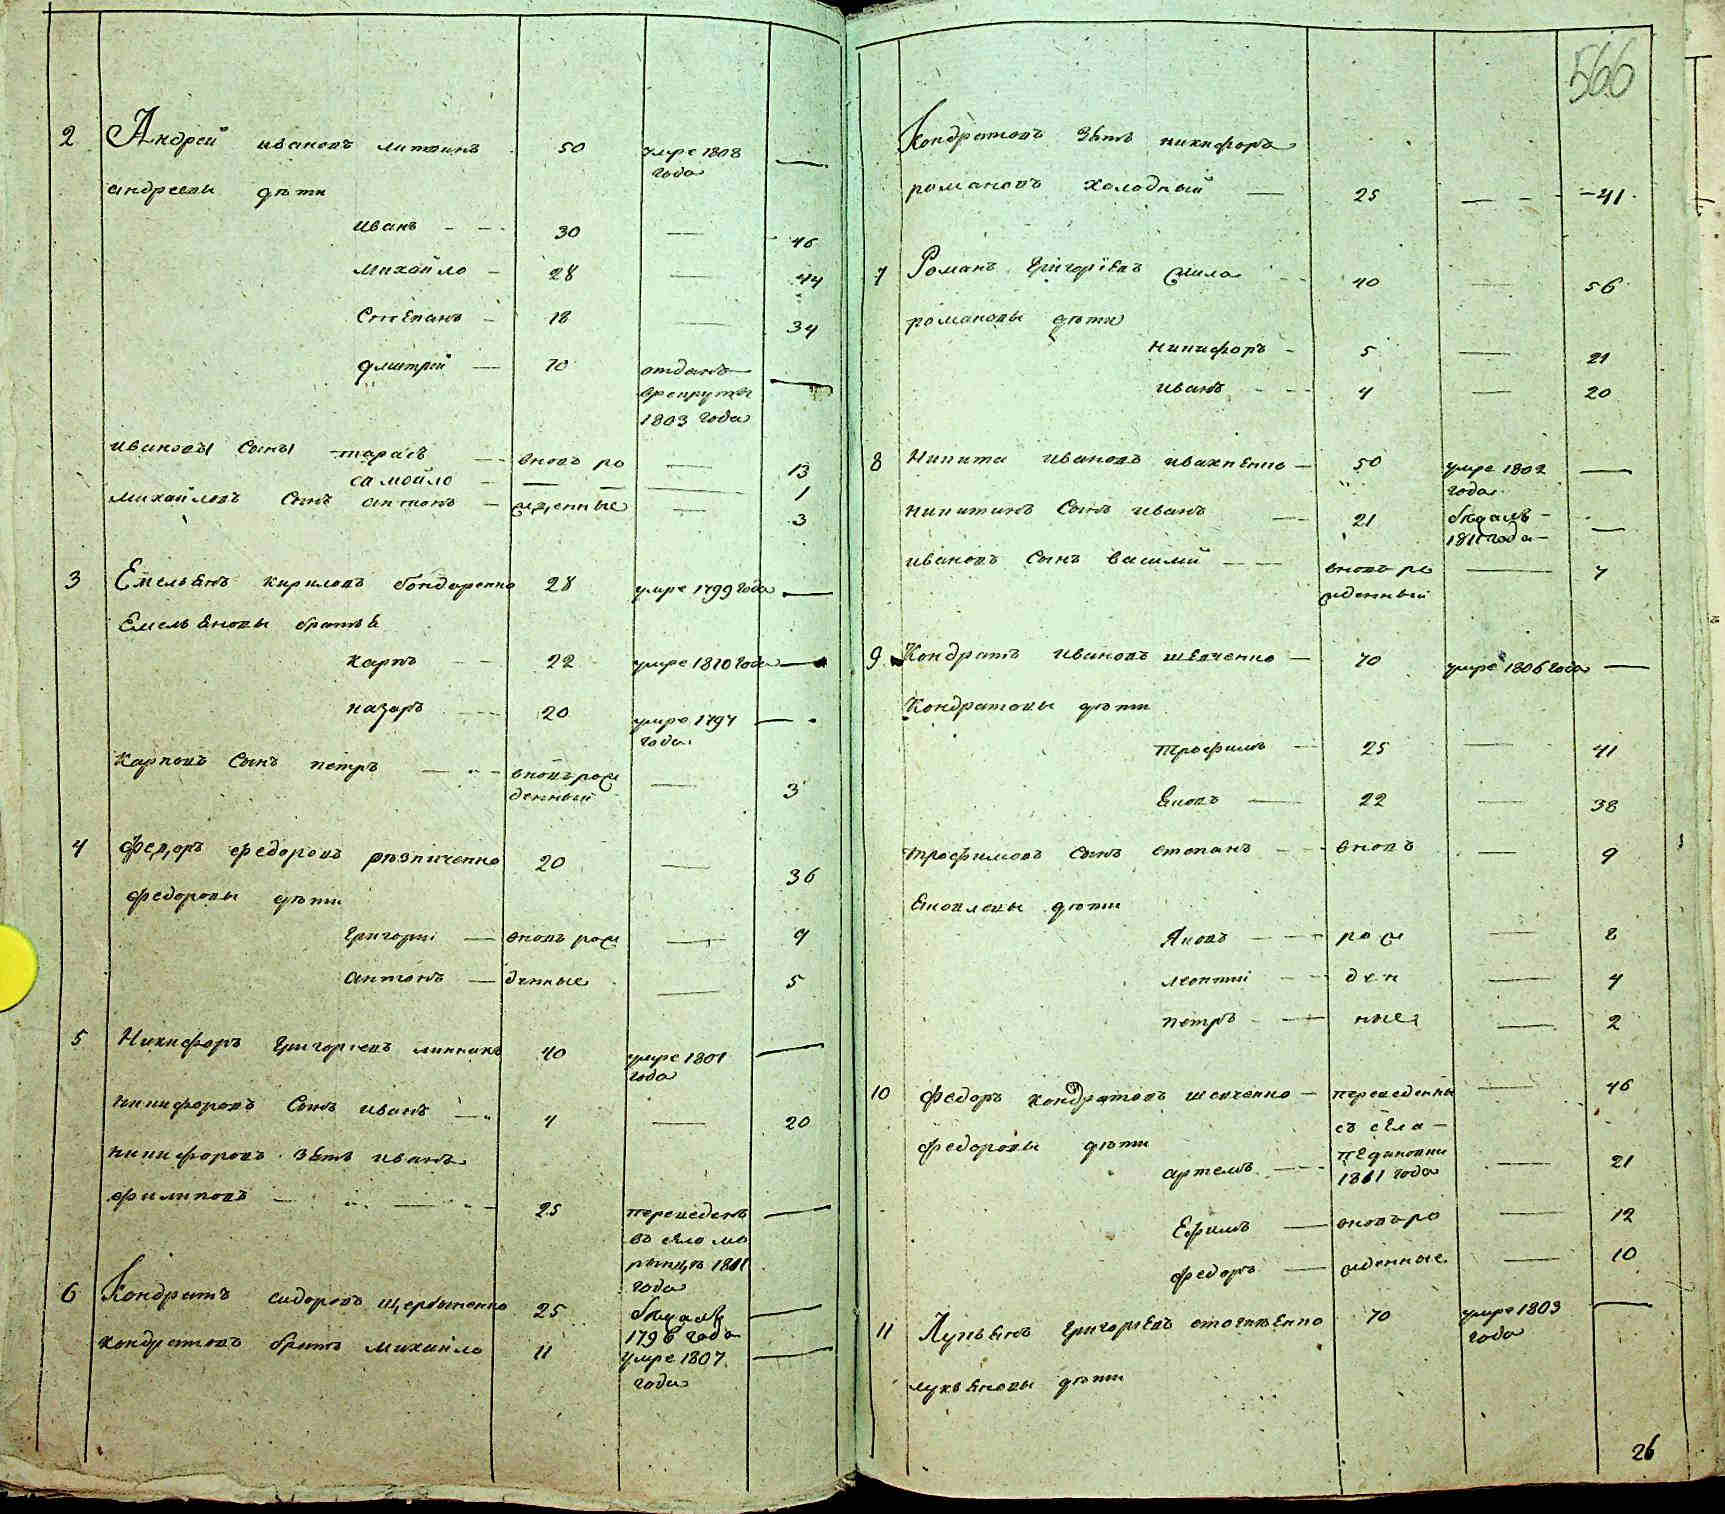 2 Андрей ивановъ литвинъ 50 умре 1808 года —
андреевы дѣти
иванъ 30 — 46
михайло 28 — 44
Степанъ 18 — 34
дмитрій 10 отданъ
врекруты
1803 года —
ивановы сыны тарасъ вновь ро — 13
самойло — 1
михайловъ сынъ антонъ жденные — 3
3 Емельянъ кириловъ бондаренко 28 умре 1799 года —
Емельяновы братья
карпъ 22 умре 1810 года —
назаръ 20 умре 1797 года —
карповъ сынъ петръ вновь рож
денный — 3
4 Федоръ федоровъ 20 — 36
федоровы дѣти
григорій вновь рож — 9
антонъ денные — 5
5 Никифоръ григорьевъ линникъ 40 умре 1801 года —
никифоровъ сынъ иванъ 4 — 20
никифоровъ зять иванъ
филиповъ 25 переведенъ —
въ село мо
ринцы 1811
года
6 Кондратъ сидоровъ щербыненко 25 бѣжалъ
1796 года —
кондратовъ братъ михайло 11 умре 1807
года —
566
Кондратовъ зять никифоръ
романовъ холодный 25 — 41
7 Романъ григорьевъ 40 — 56
романовы дѣти
никифоръ 5 — 21
иванъ 4 — 20
8 Никита ивановъ ивахненко 50 умре 1802
года —
никитинъ сынъ иванъ 21 бѣжалъ
1811 года —
ивановъ сынъ василий вновь ро
жденный — 7
9 Кондратъ ивановъ шевченко 70 умре 1806 года —
Кондратовы дѣти
трофимъ 25 — 41
Яковъ 22 — 38
трофимовъ сынъ степанъ вновь — 9
Яковлевы дѣти
Яковъ рож — 8
леонтій ден — 4
петръ ные — 2
10 Федоръ кондратовъ шевченко переведенны — 46
съ села
федоровы дѣти
артемъ пединовки
1811 года — 21
Ефимъ вновь ро — 12
федоръ жденные — 10
11 Лукьянъ григорьевъ 70 умре 1803
года —
лукьяновы дѣти
26